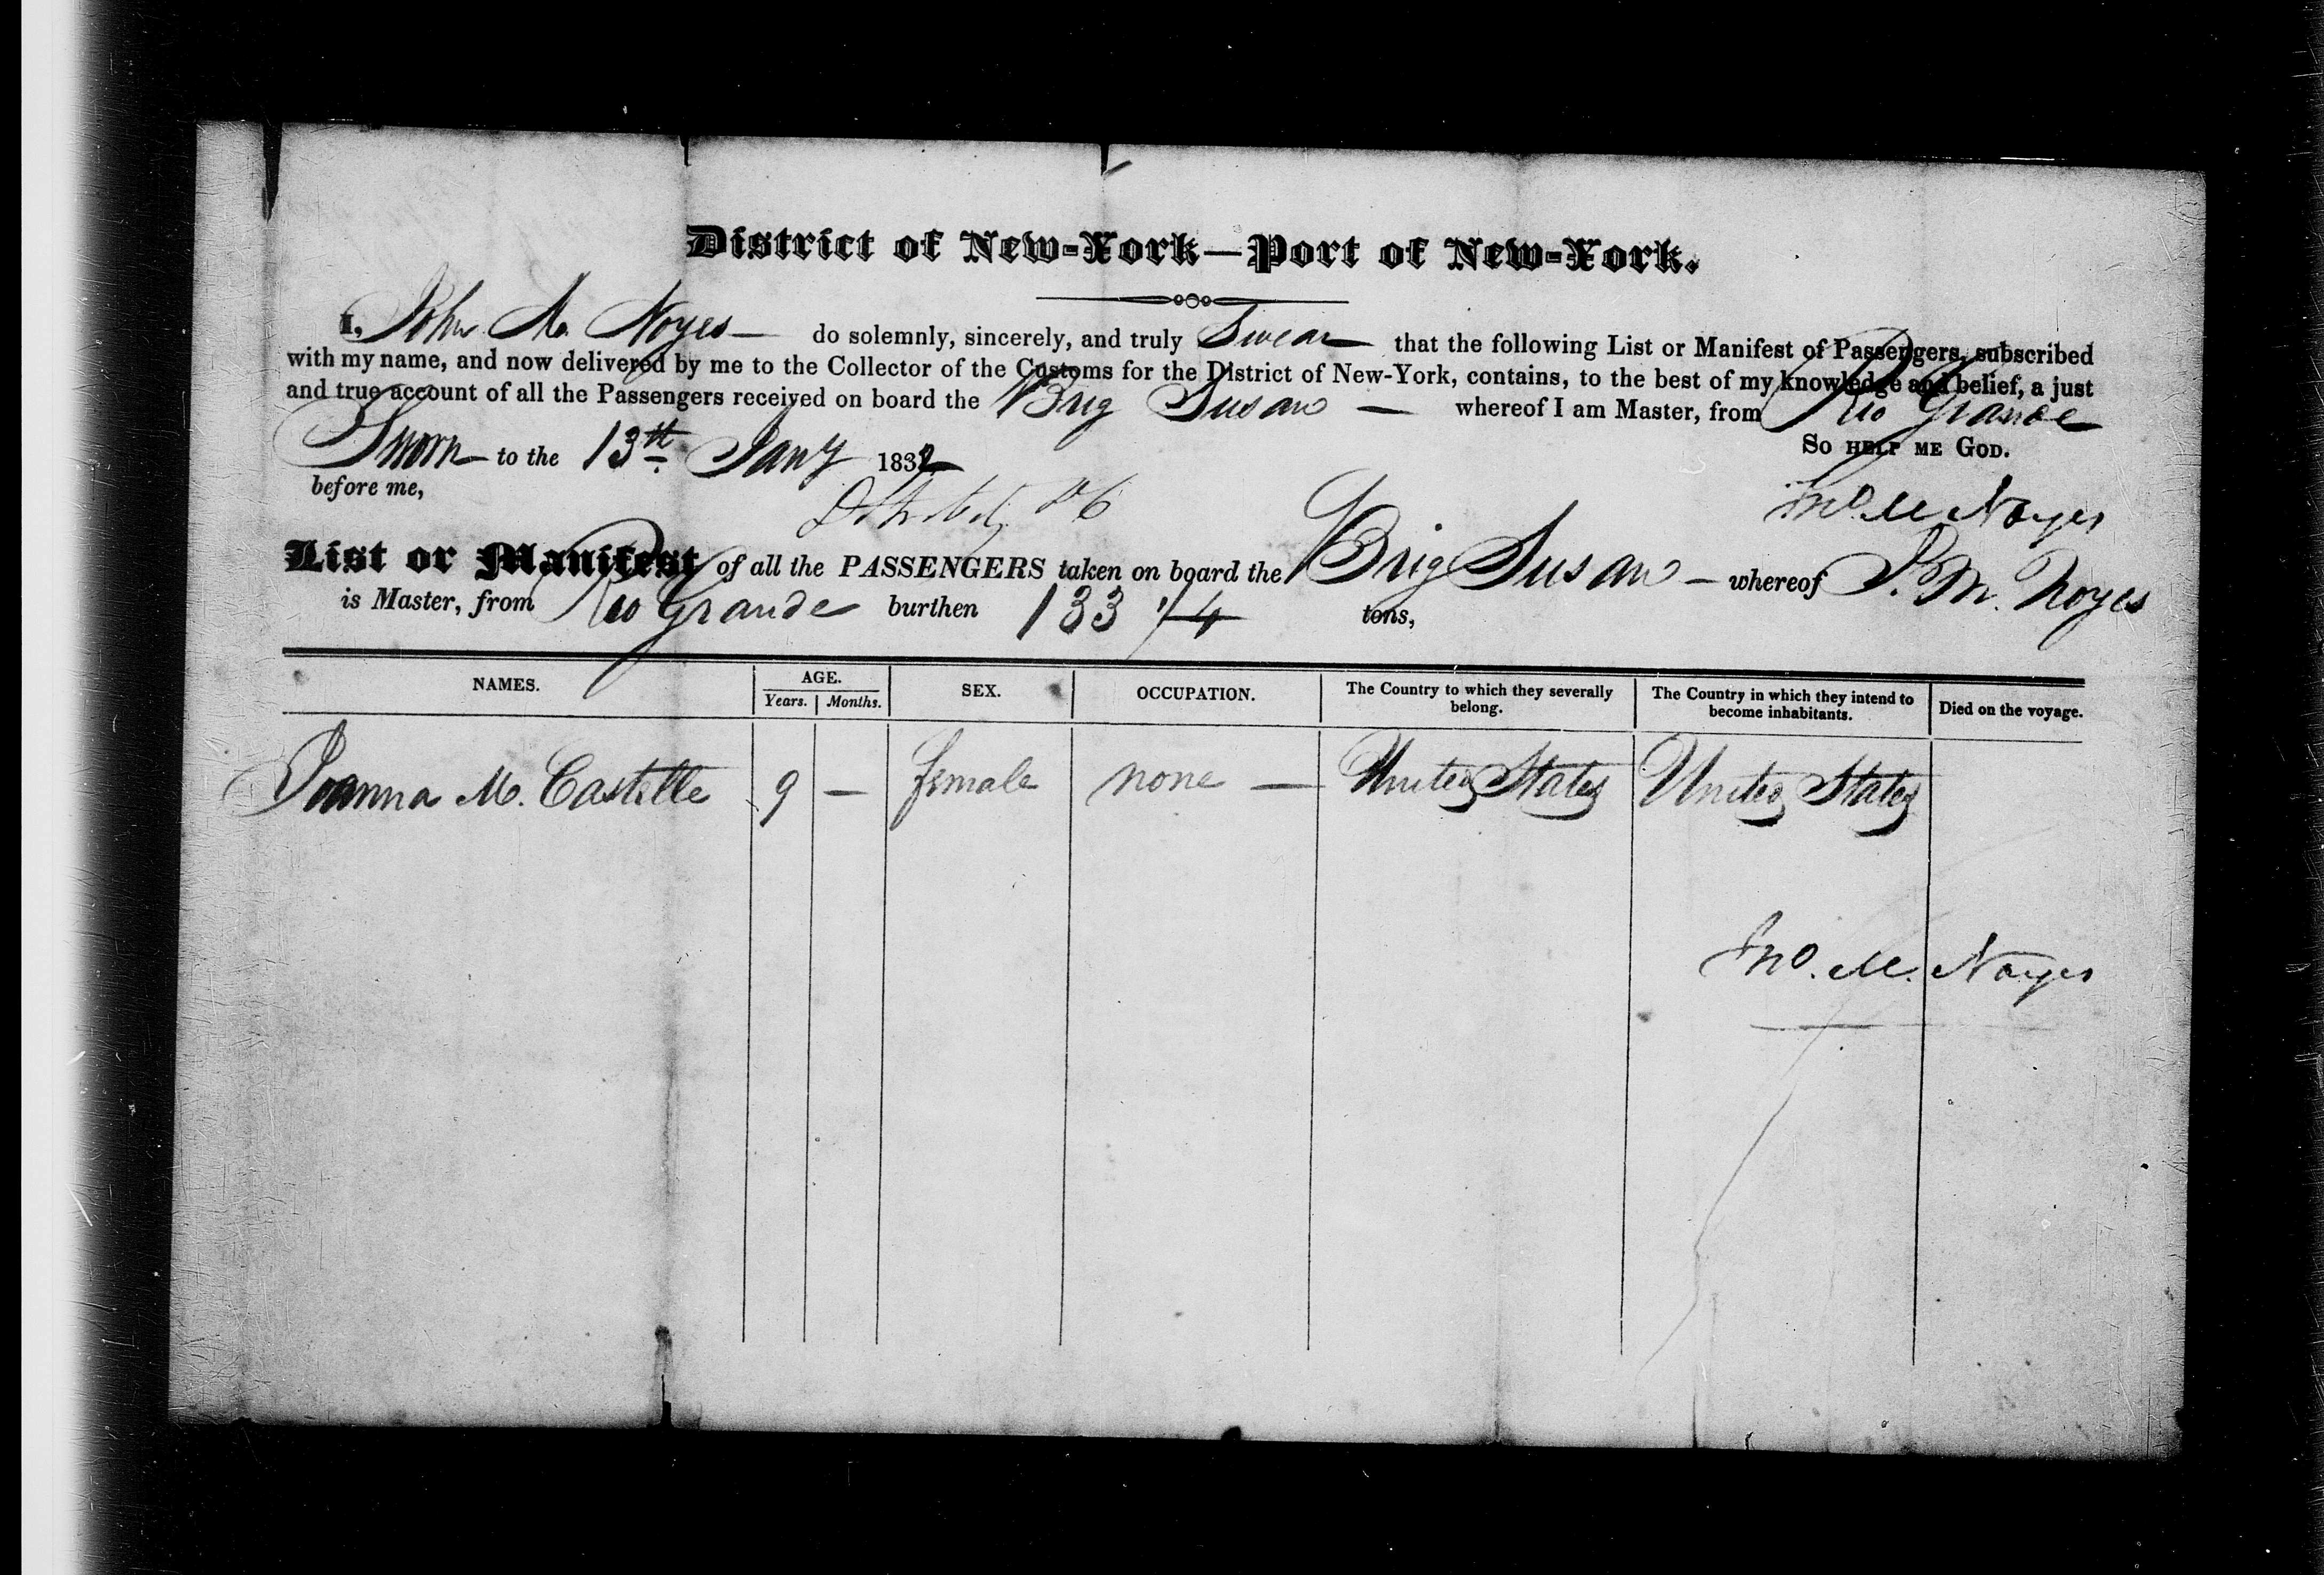 District of New-York—Port of New-York.
I, John M. Noyes — do solemnly, sincerely, and truly Swear — that the following List or Manifest of Passengers, subscribed
with my name, and now delivered by me to the Collector of the Customs for the District of New-York, contains, to the best of my knowledge and belief, a just
and true account of all the Passengers received on board the Brig Susan — whereof I am Master, from Rio Grande
Sworn to the 13th Jany 1832 So help me God.
before me, Jno. M Noyes
List or Manifest of all the PASSENGERS taken on board the Brig Susan — whereof J. M. Noyes
is Master, from Rio Grande burthen 133 1/4 tons,
NAMES. AGE. Years. Months. SEX. OCCUPATION. The Country to which they severally belong. The Country in which they intend to become inhabitants. Died on the voyage.
Joanna M. Castelle 9 — female none — United States United States
Jno. M. Noyes